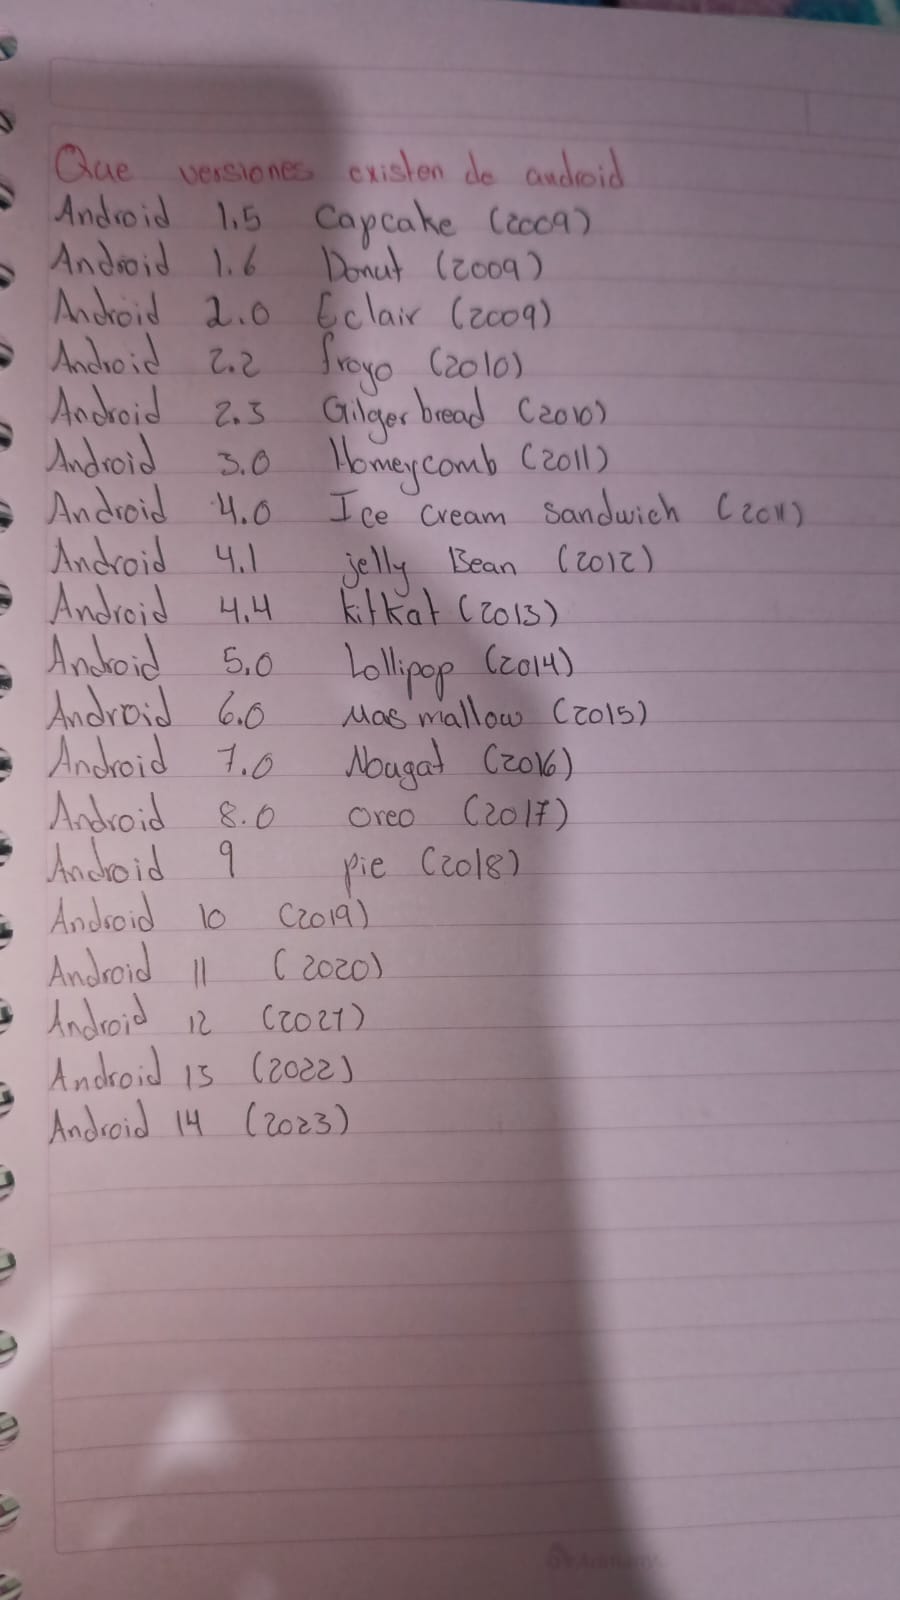 Que versiones existen de android
Android 1.5 Capcake (2009)
Android 1.6 Donut (2009)
Android 2.0 Eclair (2009)
Android 2.2 froyo (2010)
Android 2.3 Gilger bread (2010)
Android 3.0 Homeycomb (2011)
Android 4.0 Ice cream sandwich (2011)
Android 4.1 jelly Bean (2012)
Android 4.4 kitkat (2013)
Android 5.0 Lollipop (2014)
Android 6.0 Mas mallow (2015)
Android 7.0 Nougat (2016)
Android 8.0 oreo (2017)
Android 9 pie (2018)
Android 10 (2019)
Android 11 (2020)
Android 12 (2021)
Android 13 (2022)
Android 14 (2023)